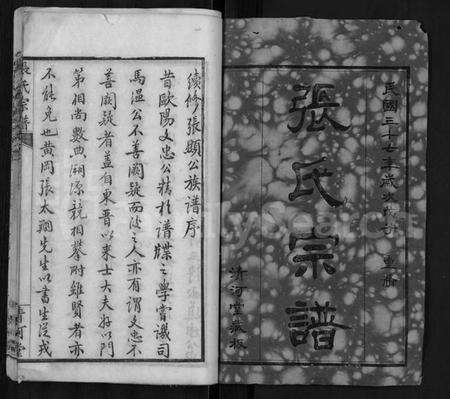 民國三十七年歲次戊子 重脩
張氏宗譜
清河堂藏板
續修張顯公族譜序
昔歐陽文忠公精於譜牒之學嘗譏司
馬溫公不善國號而後之人亦有謂文忠不
善國號者蓋自東晋以來士大夫好以門
第相尚數典溯源競相攀附雖賢者亦
不能免也黄岡張太翔先生以書生從戎
張氏宗譜
清河堂